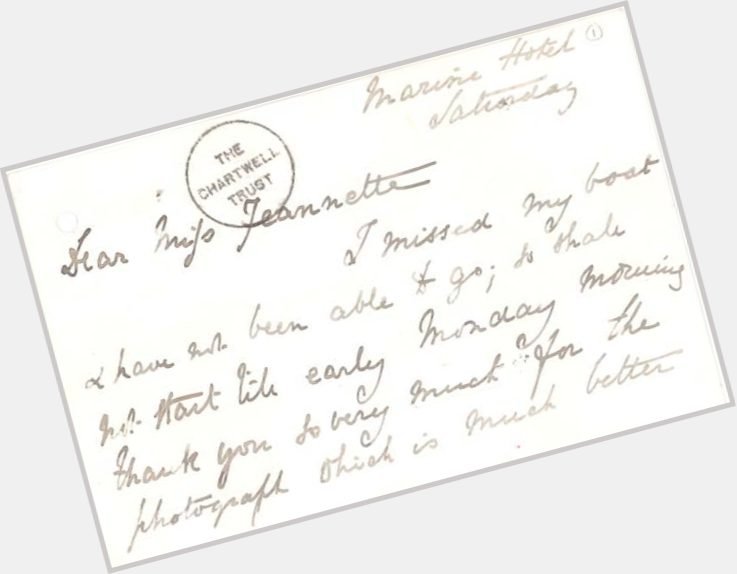 ①
Marine Hotel
Saturday
THE
CHARTWELL
TRUST
Dear Miss Jeannette
I missed my boat
& have not been able to go; so shall
not start till early Monday morning
thank you so very much for the
photograph which is much better